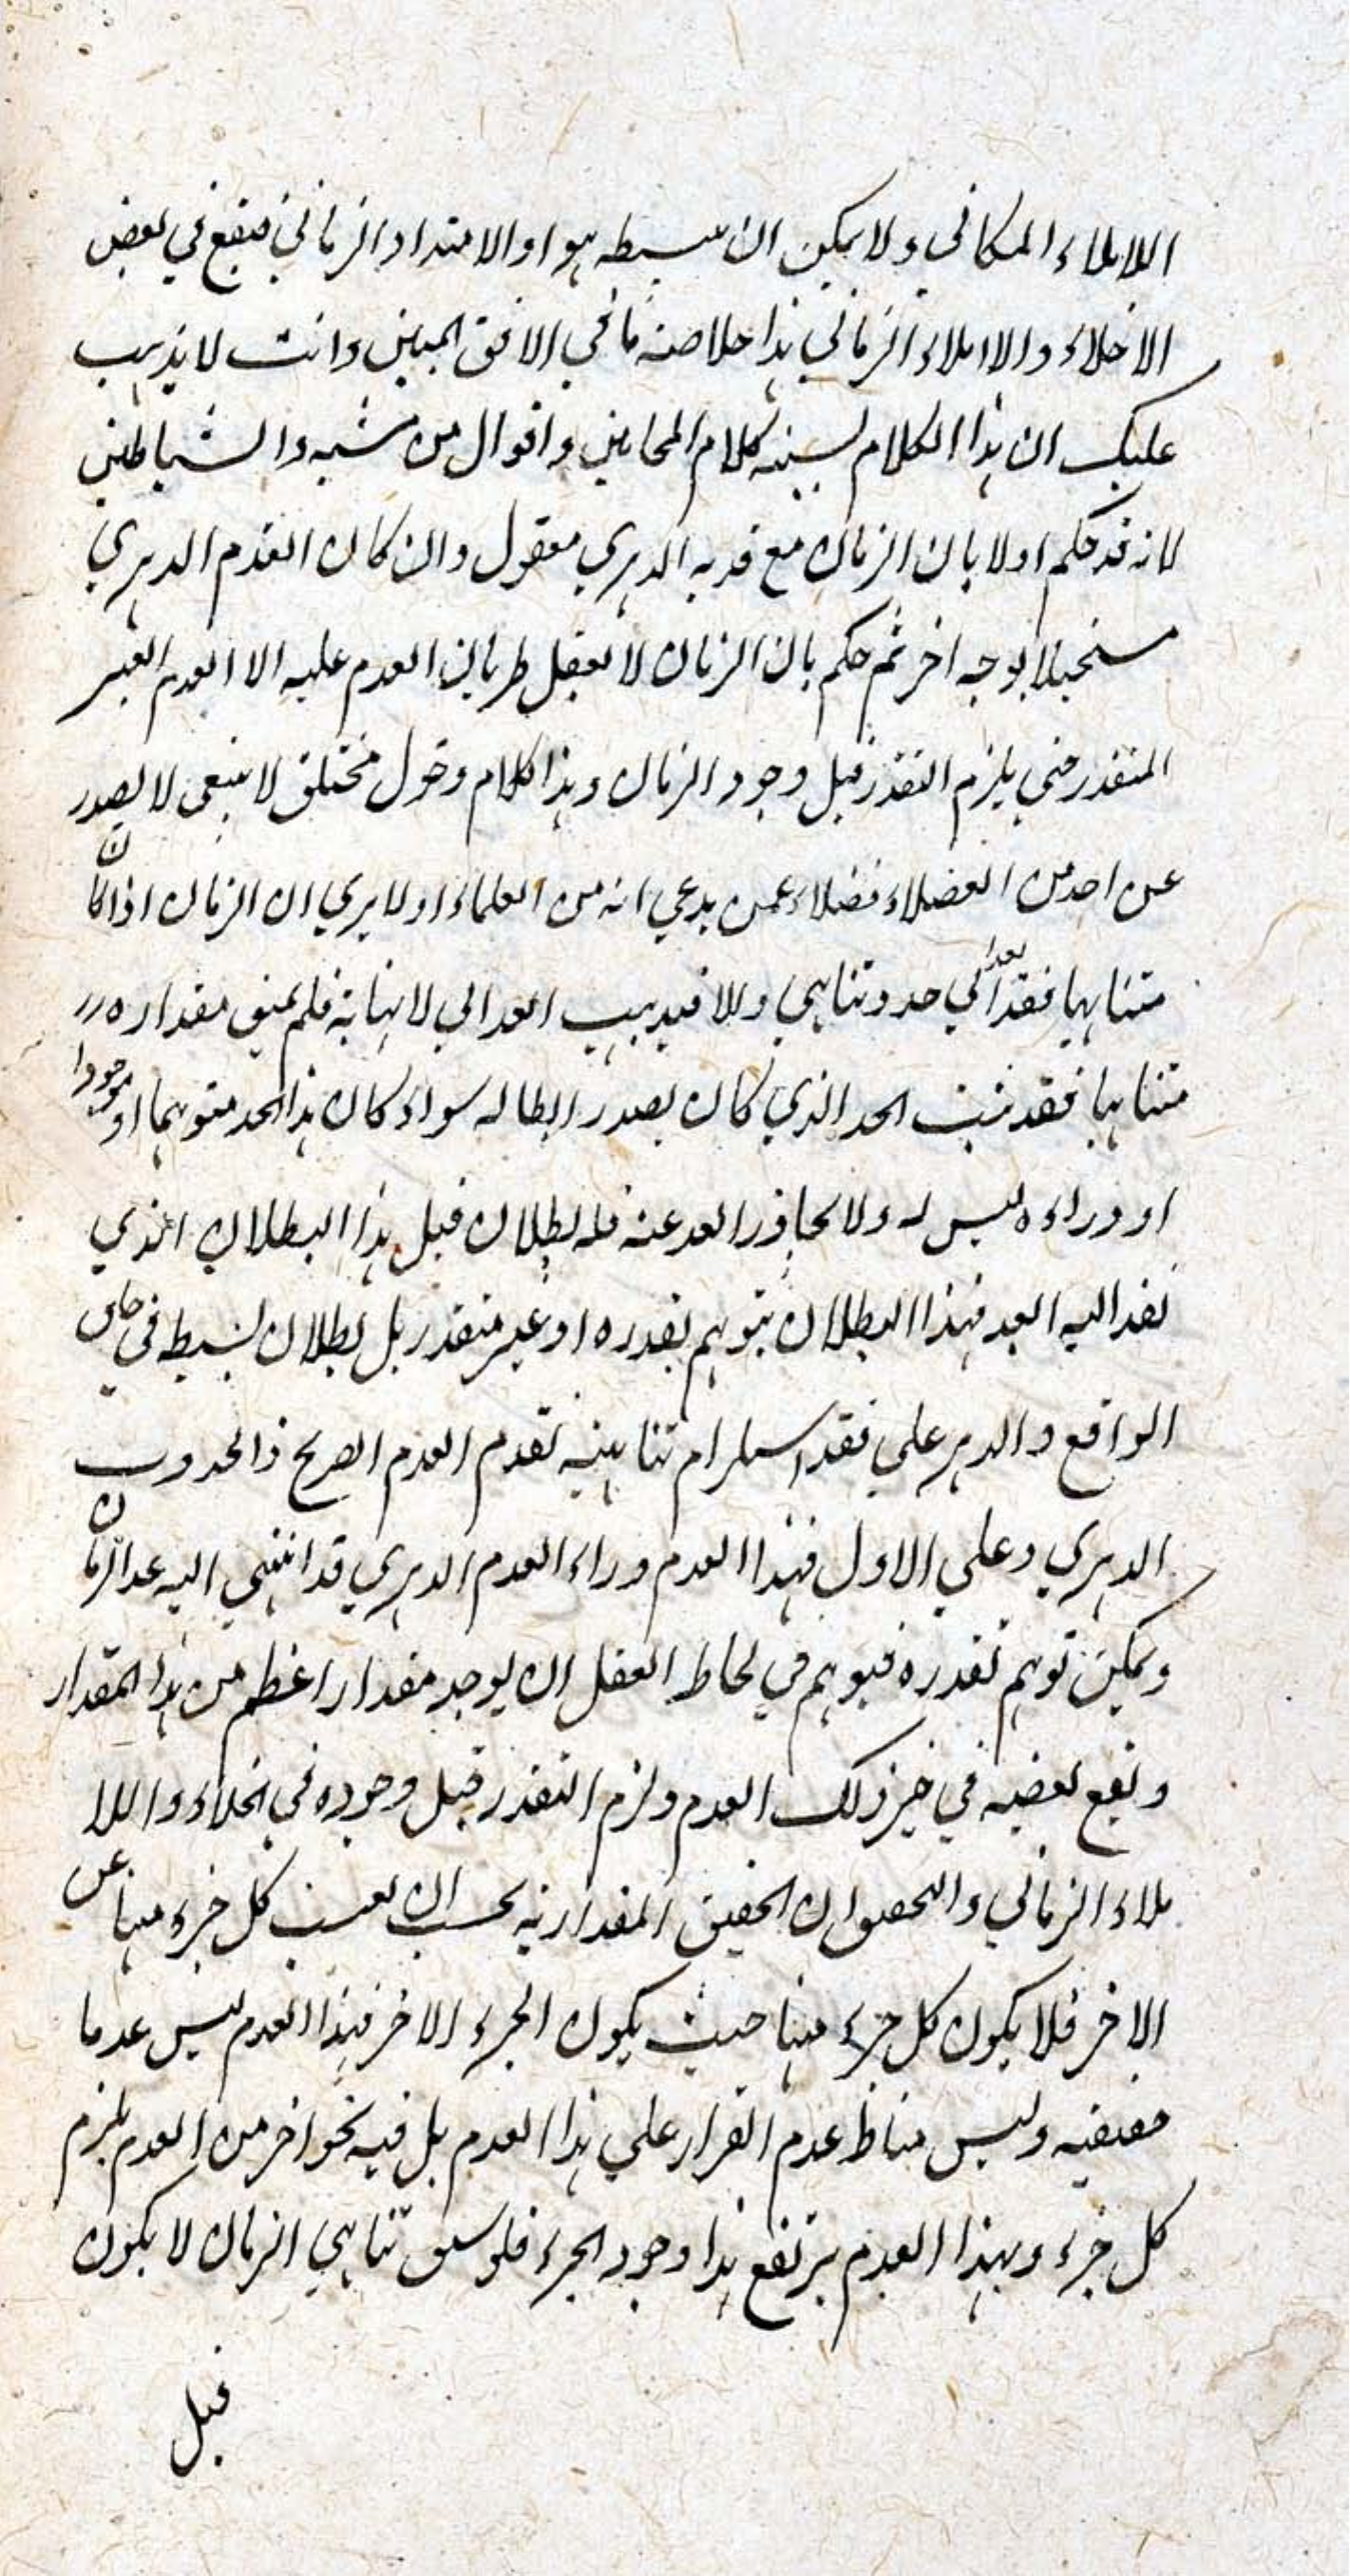 اللاملاء المكاني ولا يمكن ان يبسطه هو او الامتداد الزماني فيقع في بعض
الاخلاء والاملاء الزماني هذا خلاصة ما في الافق المبين وانت لا يذهب
عليك ان هذا الكلام يشبه كلام المجانين واقوال من مسه الشياطين
لانه قد حكم اولا بان الزمان مع قدمه الدهري معقول وان كان القدم الدهري
مستحيلا بوجه اخر ثم حكم بان الزمان لا يعقل طريان العدم عليه الا العدم الغير
المتقدر حتى يلزم التقدر قبل وجود الزمان وهذا كلام وقول مختلق لا ينبغي لا يصدر
عن احد من الفضلاء فضلا عمن يدعي انه من العلماء اولا يرى ان الزمان اذا كان
متناهيا فقد بعدا لي حد وتناهي والا فيذهب البعد الي لا نهاية فلم يبق مقداره
متناهيا فقد ثبت الحد الذي كان بصدد ابطاله سواء كان هذا الحد متوهما او موجودا
او وراءه ليس له ولا تجاوز البعد عنه فله بطلان قبل هذا البطلان الذي
نفد اليه البعد فهذا البطلان يتوهم تقدره او غير متقدر بل بطلان بسيط في حاق
الواقع والدهر علي فقد استلزام تناهيه تقدم العدم الصريح ذا الحدوث
الدهري وعلي الاول فهذا العدم وراء العدم الدهري قد انتهي اليه عد الزمان
ويمكن توهم تقدره فيوهم في لحاظ العقل ان يوجد مقدار اعظم من هذا المقدار
ويقع بعضه في حيز ذلك العدم ولزم التقدر قبل وجوده في الخلاء واللا
ملاء الزماني والتحصل ان الحقيق المقدارية بحسب ان يعيب كل جزء منها عن
الاخر فلا يكون كل جزء منها حيث يكون الجزء الاخر فهذا العدم ليس عدما
حقيقيه وليس مناط عدم القرار علي هذا العدم بل فيه نحو اخر من العدم يلزم
كل جزء وبهذا العدم يرتفع هذا وجود الجزء فلو سبق تناهي الزمان لا يكون
قبل